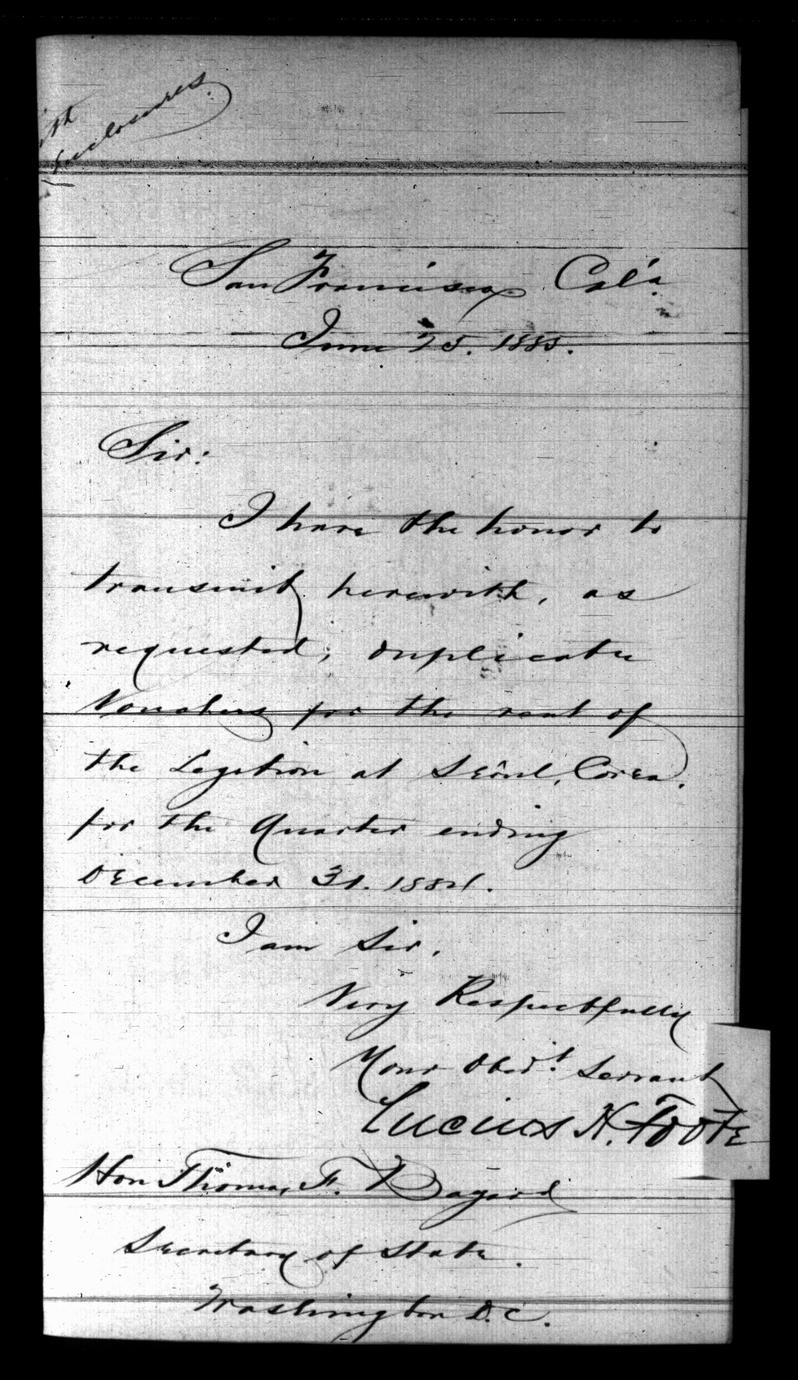 ith
Enclosures.
San Francisco Cal'a.
June 25. 1885.
Sir:
I have the honor to
transmit herewith, as
requested, duplicate
Vouchers for the rent of
the Legation at Séoul, Corea.
for the Quarter ending
December 31. 1884.
I am Sir.
Very Respectfully
Your Obed't Servant
Lucius H. Foote
Hon Thomas F. Bayard
Secretary of State.
Washington D.C.